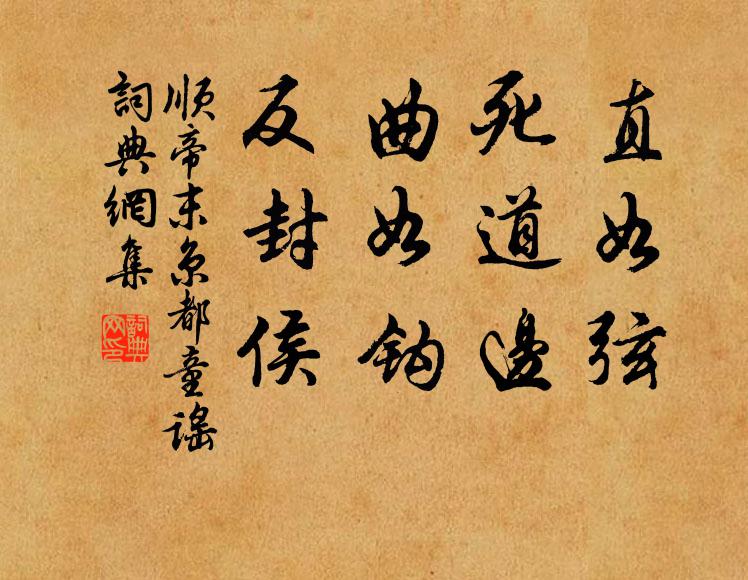 直如弦
死道邊
曲如鈎
反封侯
順帝末京都童謠
詞典網集
詞典網印